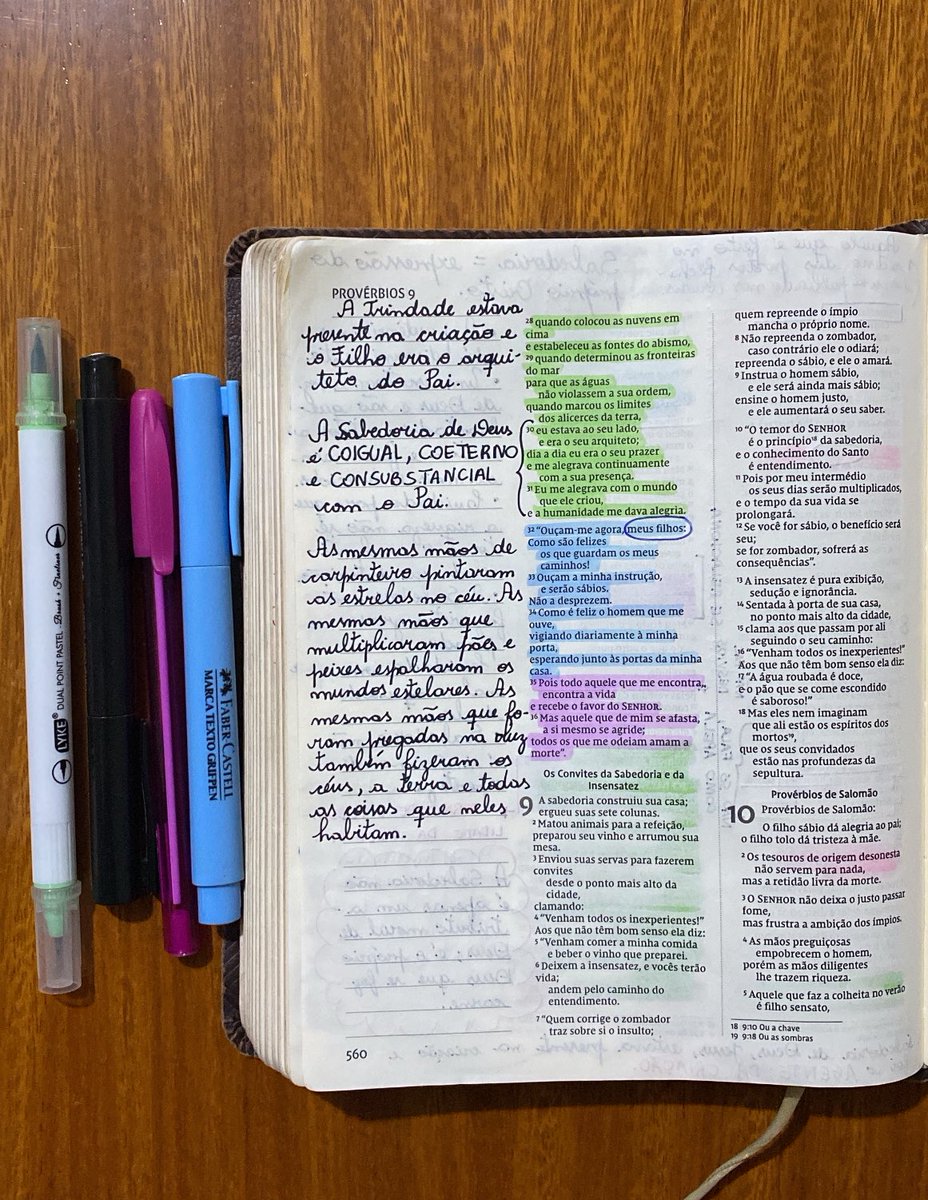 PROVÉRBIOS 9
A Trindade estava
presente na criação e
o Filho era o arqui-
teto do Pai.
A Sabedoria de Deus
é COIGUAL, COETERNO
e CONSUBSTANCIAL
com o Pai.
As mesmas mãos de
carpinteiro pintaram
as estrelas no céu. As
mesmas mãos que
multiplicaram pães e
peixes espalharam os
mundos estelares. As
mesmas mãos que fo-
ram pregadas na cruz
também fizeram os
céus, a terra e todas
as coisas que neles
habitam.
28 quando colocou as nuvens em
cima
e estabeleceu as fontes do abismo,
29 quando determinou as fronteiras
do mar
para que as águas
não violassem a sua ordem,
quando marcou os limites
dos alicerces da terra,
30 eu estava ao seu lado,
e era o seu arquiteto;
dia a dia eu era o seu prazer
e me alegrava continuamente
com a sua presença.
31 Eu me alegrava com o mundo
que ele criou,
e a humanidade me dava alegria.
32 “Ouçam-me agora, meus filhos:
Como são felizes
os que guardam os meus
caminhos!
33 Ouçam a minha instrução,
e serão sábios.
Não a desprezem.
34 Como é feliz o homem que me
ouve,
vigiando diariamente à minha
porta,
esperando junto às portas da minha
casa.
35 Pois todo aquele que me encontra,
encontra a vida
e recebe o favor do SENHOR.
36 Mas aquele que de mim se afasta,
a si mesmo se agride;
todos os que me odeiam amam a
morte”.
Os Convites da Sabedoria e da
Insensatez
9 A sabedoria construiu sua casa;
ergueu suas sete colunas.
2 Matou animais para a refeição,
preparou seu vinho e arrumou sua
mesa.
3 Enviou suas servas para fazerem
convites
desde o ponto mais alto da
cidade,
clamando:
4 “Venham todos os inexperientes!”
Aos que não têm bom senso ela diz:
5 “Venham comer a minha comida
e beber o vinho que preparei.
6 Deixem a insensatez, e vocês terão
vida;
andem pelo caminho do
entendimento.
7 “Quem corrige o zombador
traz sobre si o insulto;
quem repreende o ímpio
mancha o próprio nome.
8 Não repreenda o zombador,
caso contrário ele o odiará;
repreenda o sábio, e ele o amará.
9 Instrua o homem sábio,
e ele será ainda mais sábio;
ensine o homem justo,
e ele aumentará o seu saber.
10 “O temor do SENHOR
é o princípio18 da sabedoria,
e o conhecimento do Santo
é entendimento.
11 Pois por meu intermédio
os seus dias serão multiplicados,
e o tempo da sua vida se
prolongará.
12 Se você for sábio, o benefício será
seu;
se for zombador, sofrerá as
consequências”.
13 A insensatez é pura exibição,
sedução e ignorância.
14 Sentada à porta de sua casa,
no ponto mais alto da cidade,
15 clama aos que passam por ali
seguindo o seu caminho:
16 “Venham todos os inexperientes!”
Aos que não têm bom senso ela diz:
17 “A água roubada é doce,
e o pão que se come escondido
é saboroso!”
18 Mas eles nem imaginam
que ali estão os espíritos dos
mortos19,
que os seus convidados
estão nas profundezas da
sepultura.
Provérbios de Salomão
10 Provérbios de Salomão:
O filho sábio dá alegria ao pai;
o filho tolo dá tristeza à mãe.
2 Os tesouros de origem desonesta
não servem para nada,
mas a retidão livra da morte.
3 O SENHOR não deixa o justo passar
fome,
mas frustra a ambição dos ímpios.
4 As mãos preguiçosas
empobrecem o homem,
porém as mãos diligentes
lhe trazem riqueza.
5 Aquele que faz a colheita no verão
é filho sensato,
18 9:10 Ou a chave
19 9:18 Ou as sombras
560
LYKE® DUAL POINT PASTEL Brush + Fineliner
FABER-CASTELL
MARCA TEXTO GRIFPEN